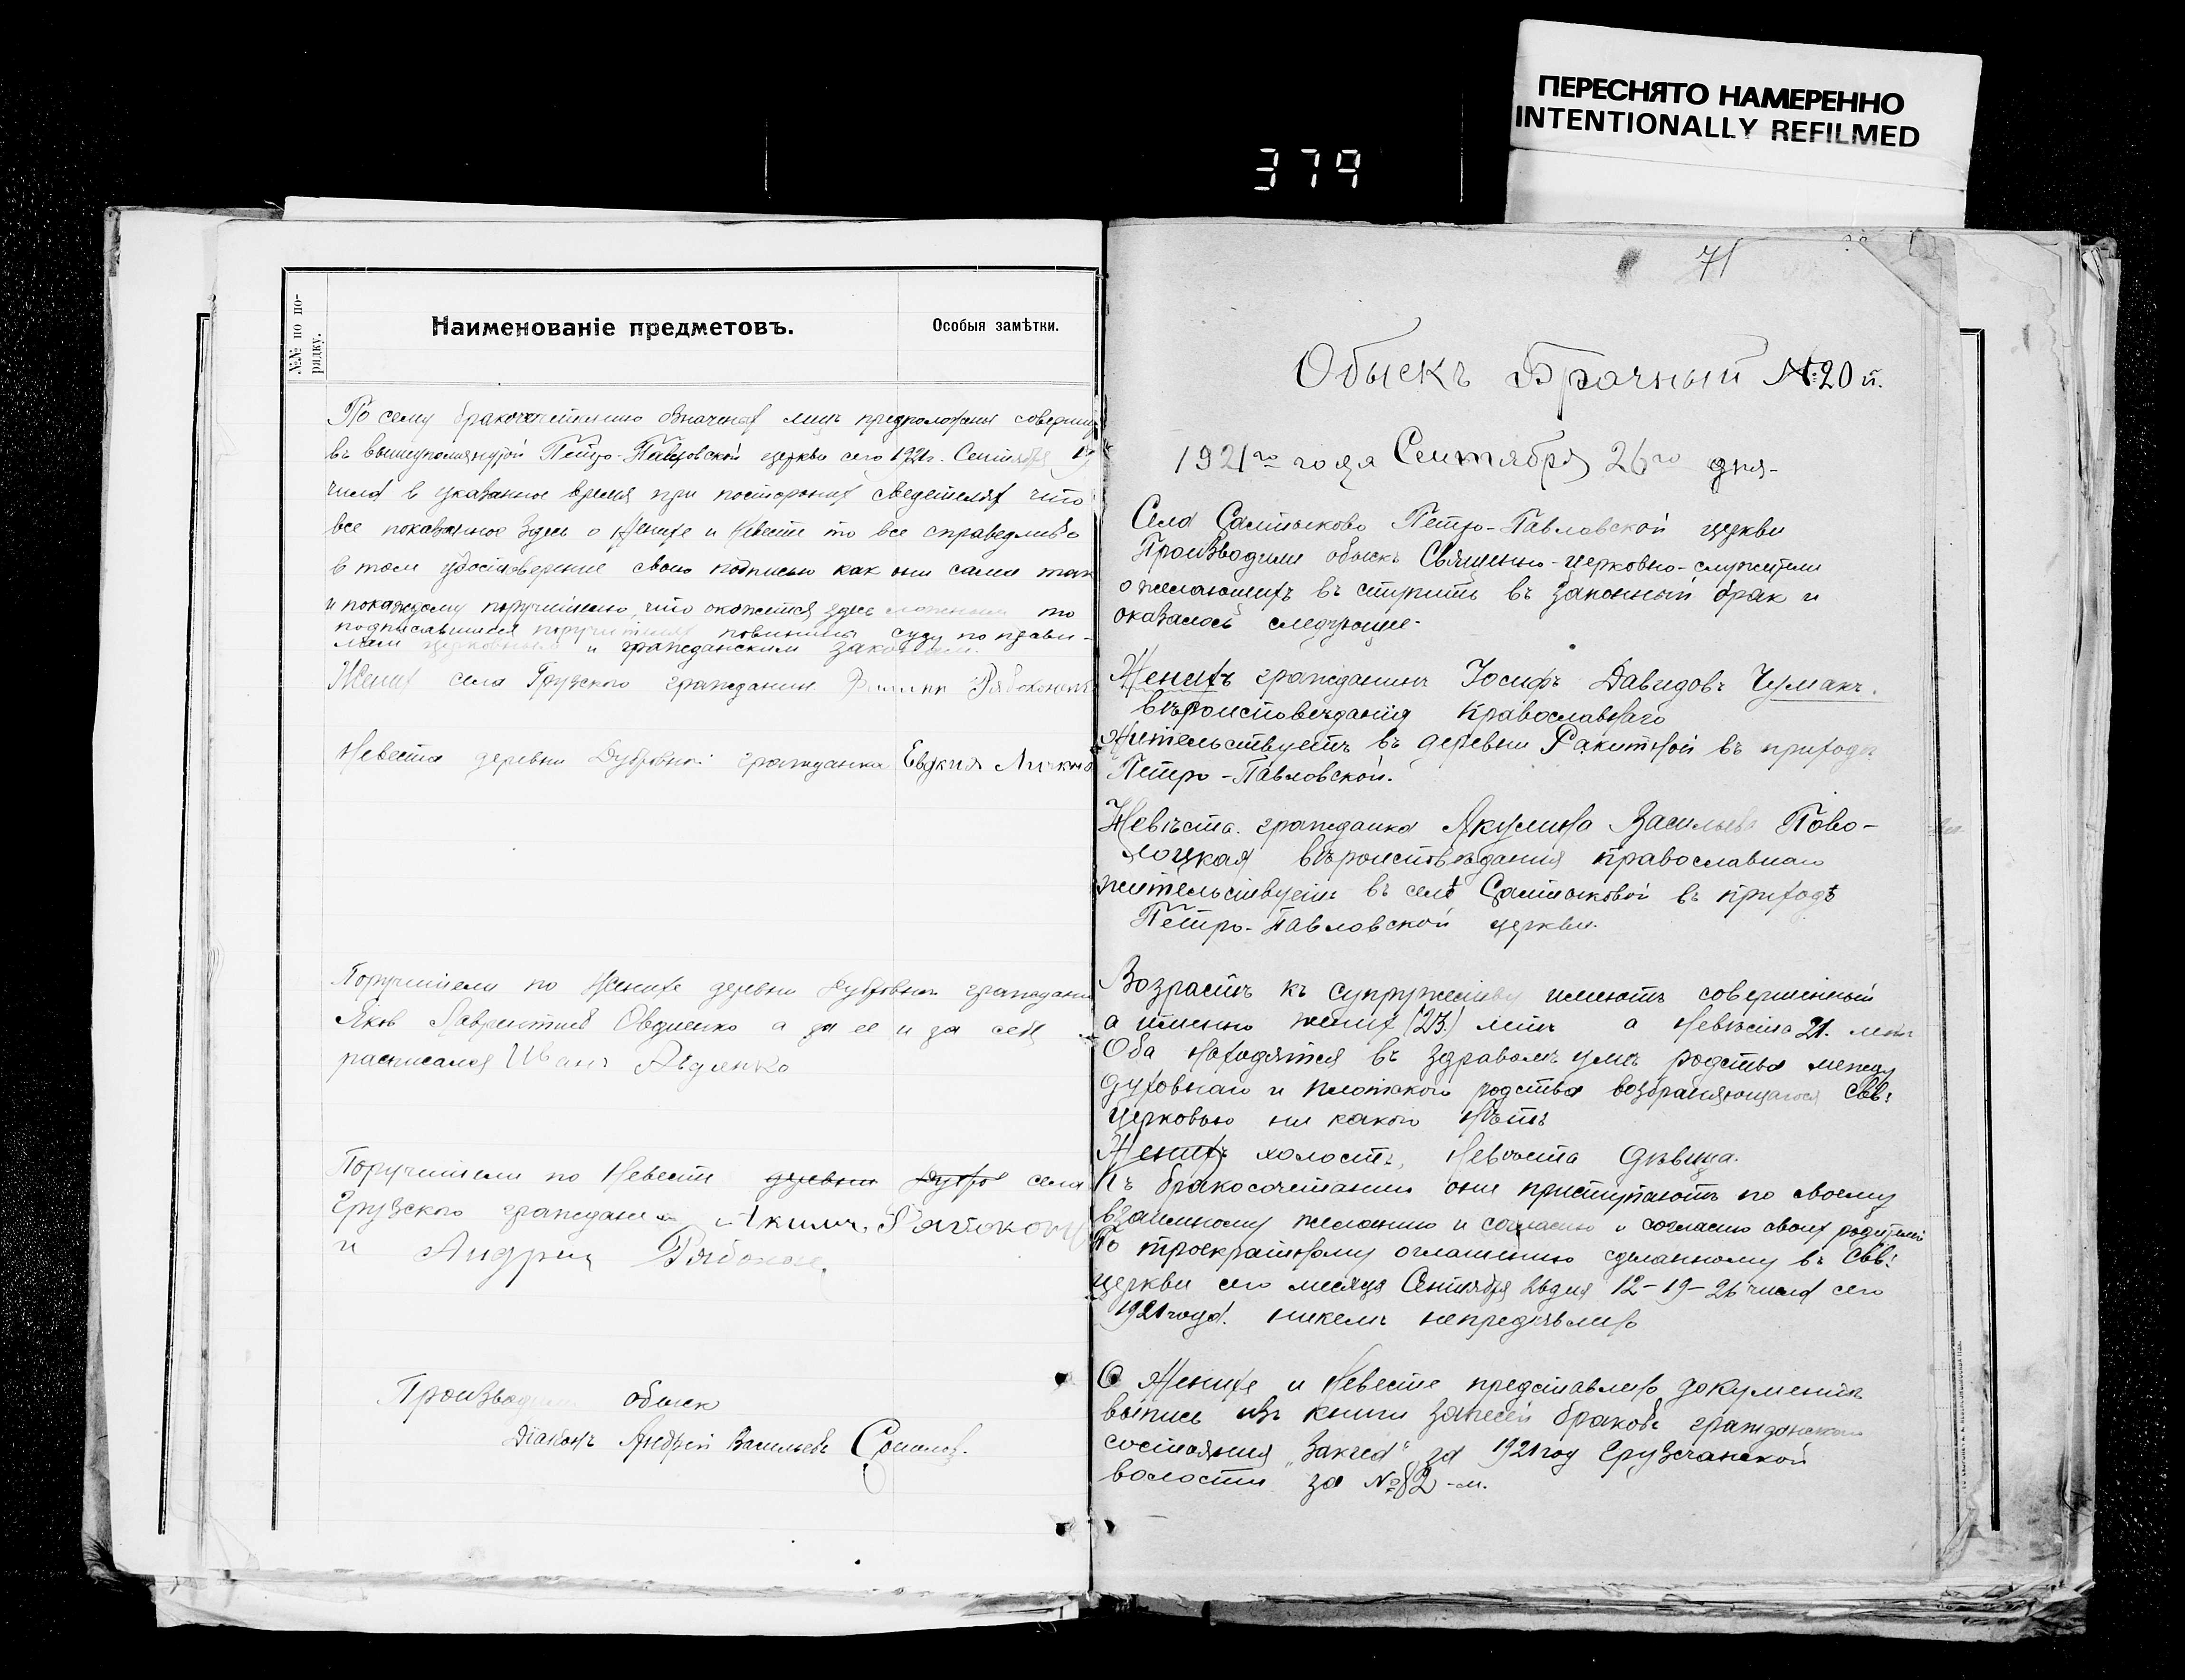 ПЕРЕСНЯТО НАМЕРЕННО
INTENTIONALLY REFILMED
379
№№ по по-
рядку.
Наименованіе предметовъ.
Особыя замѣтки.
По сему бракосочетанию означеных лицъ предположена соверши
въ вышеупомянутой Петро-Павловской церкви сего 1921г. Сентября
числа в указанное время при посторонних сведетелях что
все показанное здесь о Женихе и Невесте то все справедливо
в том удостоверение своею подписью как они сами так
и по каждому поручителю, что окажется здесь ложным то
подписавшиеся поручители повинны суду по прави-
лам церковным и гражданским законам.
Жених села Грузского гражданин Рябоконь
Невеста деревни Дубровной гражданка Евдкия Личкна
Поручители по Женихе деревни Дубровной граждани
Яков Лаврентиев Овдиенко а за ее и за себя
расписался Иванъ Авдянко
Поручители по Невесте деревни Дубро села
Грузского граждане Акимъ Рябокон
и Андрий Рябоконь
Производили обыск
Діаконъ Андрей Васильевъ
71
Обыскъ Брачный №20й.
1921го года Сентября 26го дня-
Села Салтыково Петро-Павловской церкви
Производили обыскъ Священно-церковно-служители
о желающихъ въ ступить въ законный брак и
оказалось следующее-
Женихъ гражданинъ Іосифъ Давидовъ Чумакъ.
вѣроисповѣданія православнаго
Жительствуетъ въ деревни Ракитной въ приходѣ
Петро-Павловской.
Невѣста. гражданка Якулина Васильева Пово-
лоцкая вѣроисповѣдания православнаго
жительствуетъ въ селѣ Салтыковой въ приходѣ
Петро-Павловской церкви.
Возрастъ къ супружеству имеютъ совершенный
а именно жених (23.) летъ а Невѣста 21. летъ
Оба находятся въ здравомъ уме родства между
духовнаго и плотского родства возбраняющагося Свв:
Церковью ни какого нѣтъ
Женихъ холостъ, Невѣста дѣвица.
Къ бракосочетанию они приступаютъ по своему
взаимному желанию и согласию и согласию своих родителей
По троекратному оглашению сделанному въ Свв:
церкви сего месяца Сентября 26 дня 12-19-26 числа сего
1921 года. никемъ непредъявлено
О Женихе и Невесте представлено документъ
выпись изъ книги записей браковъ гражданского
состояния „Закса" за 1921 год Грузчанской
волости за №82-м.